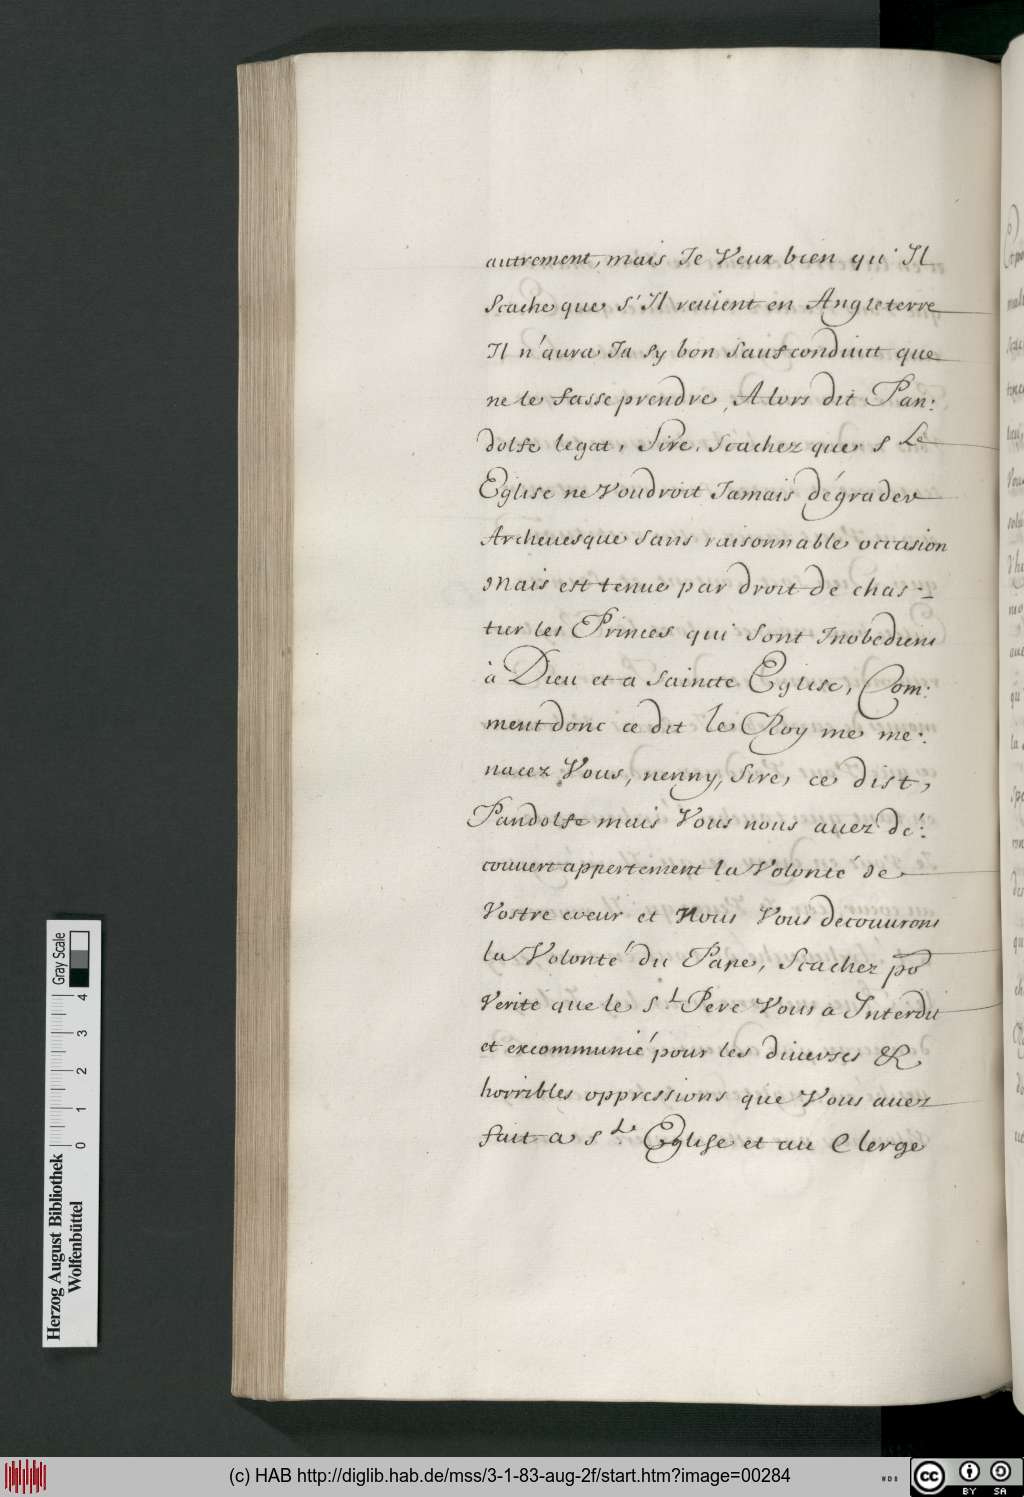 autrement, mais Je Veux bien qu' Il
Scache que s' Il reuient en Angleterre
Il n'aura Ja sy bon Sauf conduitt que
ne le fasse prendre, Alors dit Pan:
dolfe legat, Sire, Scachez que s Le
Eglise ne Voudroit Jamais dégrader
Archeuesque Sans raisonnable occasion
Mais est tenue par droit de chas -
tier les Princes qui Sont Inobediens
à Dieu et a Saincte Eglise, Com:
ment donc ce dit le Roy me me:
nacez Vous, nenny, Sire, ce dist,
Pandolfe mais Vous nous auez dé:
couvert appertement la Volonté de
Vostre cœur et Nous Vous decouurons
la Volonté du Pape, Scachez po
Verité que le S.t Pere Vous a Interdit
et excommunié pour les diuerses &
horribles oppressions que Vous auez
fait a S.te Eglise et au Clerge
Herzog August Bibliothek
Wolfenbüttel
0 1 2 3 4
Gray Scale
(c) HAB http://diglib.hab.de/mss/3-1-83-aug-2f/start.htm?image=00284
WDB
cc
BY SA